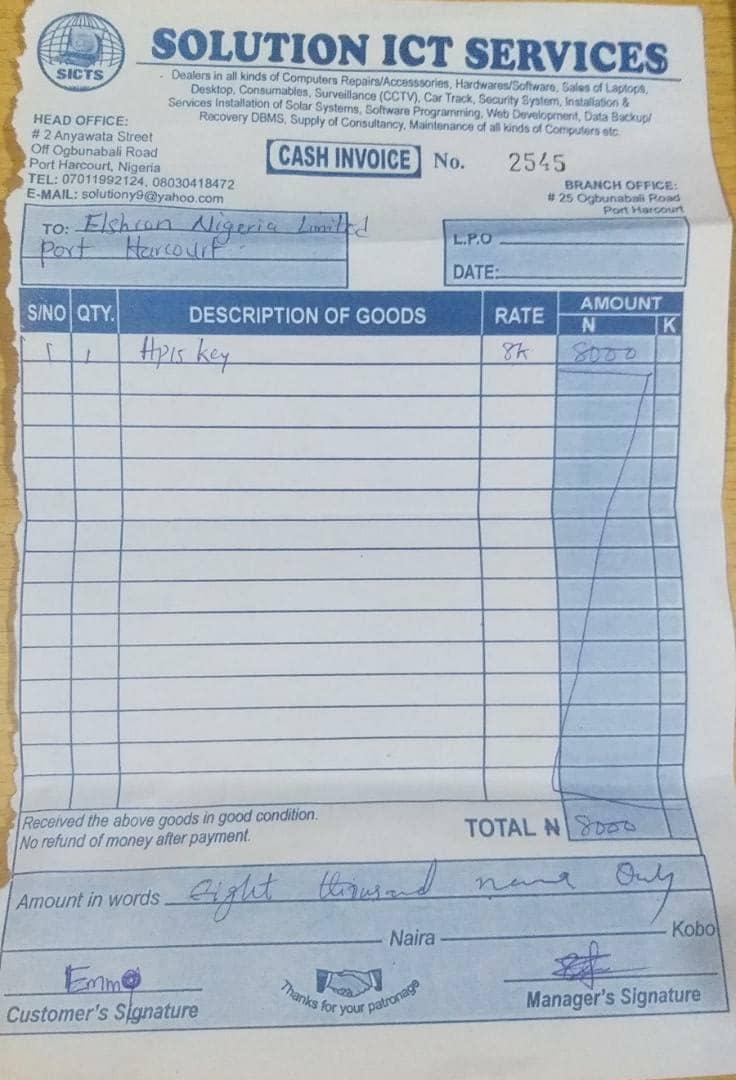 SICTS
SOLUTION ICT SERVICES
Dealers in all kinds of Computers Repairs/Accesssories, Hardwares/Software, Sales of Laptops,
Desktop, Consumables, Surveillance (CCTV), Car Track, Security System, Installation &
Services Installation of Solar Systems, Software Programming, Web Development, Data Backup/
Recovery DBMS, Supply of Consultancy, Maintenance of all kinds of Computers etc.
HEAD OFFICE:
# 2 Anyawata Street
Off Ogbunabali Road
Port Harcourt, Nigeria
TEL: 07011992124, 08030418472
E-MAIL: solutiony9@yahoo.com
CASH INVOICE No. 2545
BRANCH OFFICE:
# 25 Ogbunabali Road
Port Harcourt
TO: Elshcon Nigeria Limited
Port Harcourt
L.P.O
DATE:
S/NO QTY. DESCRIPTION OF GOODS RATE AMOUNT
N K
1 1 Hp15 key 8k 8000
Received the above goods in good condition.
No refund of money after payment.
TOTAL ₦ 8000
Amount in words eight thousand naira Only
Naira Kobo
Emma
Customer's Signature
Thanks for your patronage
Manager's Signature